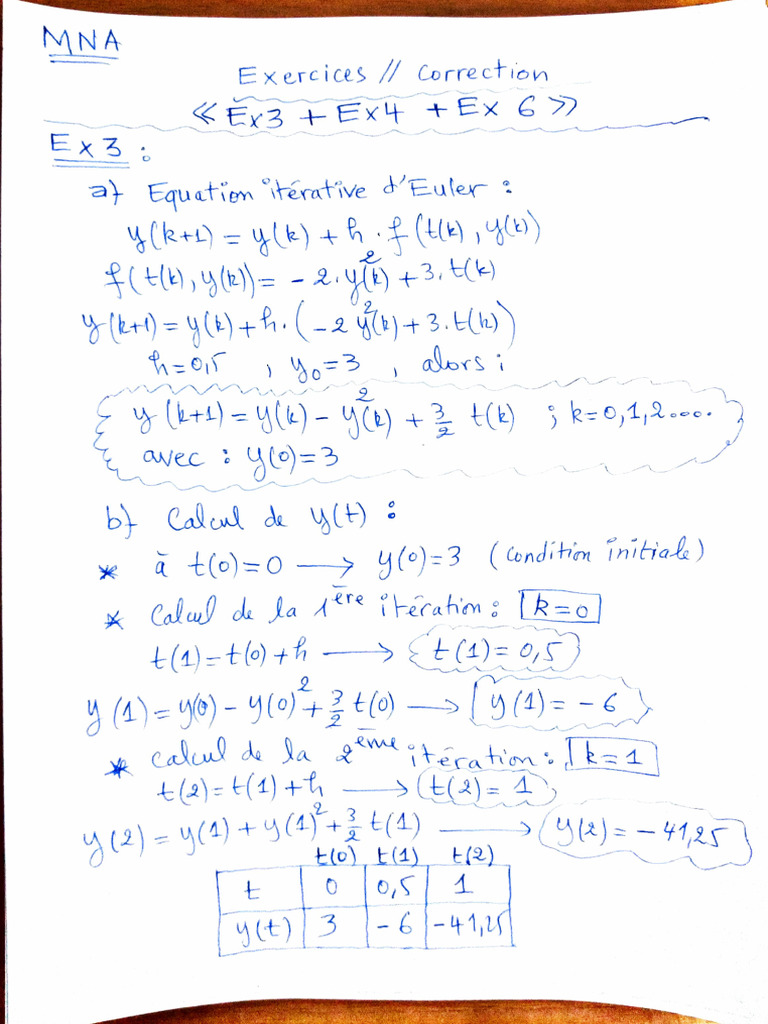 MNA
Exercices // Correction
« Ex3 + Ex4 + Ex 6 »
Ex3 :
a) Equation itérative d'Euler :
y(k+1) = y(k) + h . f(t(k), y(k))
f(t(k), y(k)) = - 2. y²(k) + 3. t(k)
y(k+1) = y(k) + h. (-2 y²(k) + 3. t(k))
h=0,5 , y₀=3 , alors ;
y(k+1) = y(k) - y²(k) + 3/2 t(k) ; k=0,1,2....
avec : y(0)=3
b) Calcul de y(t) :
* à t(0)=0 → y(0)=3 (Condition initiale)
* Calcul de la 1ère itération : k=0
t(1)=t(0)+h → t(1)=0,5
y(1)=y(0) - y(0)² + 3/2 t(0) → y(1)= -6
* calcul de la 2ème itération : k=1
t(2)=t(1)+h → t(2)= 1
y(2)= y(1) + y(1)² + 3/2 t(1) → y(2)= -41,25
t(0) t(1) t(2)
t 0 0,5 1
y(t) 3 -6 -41,25